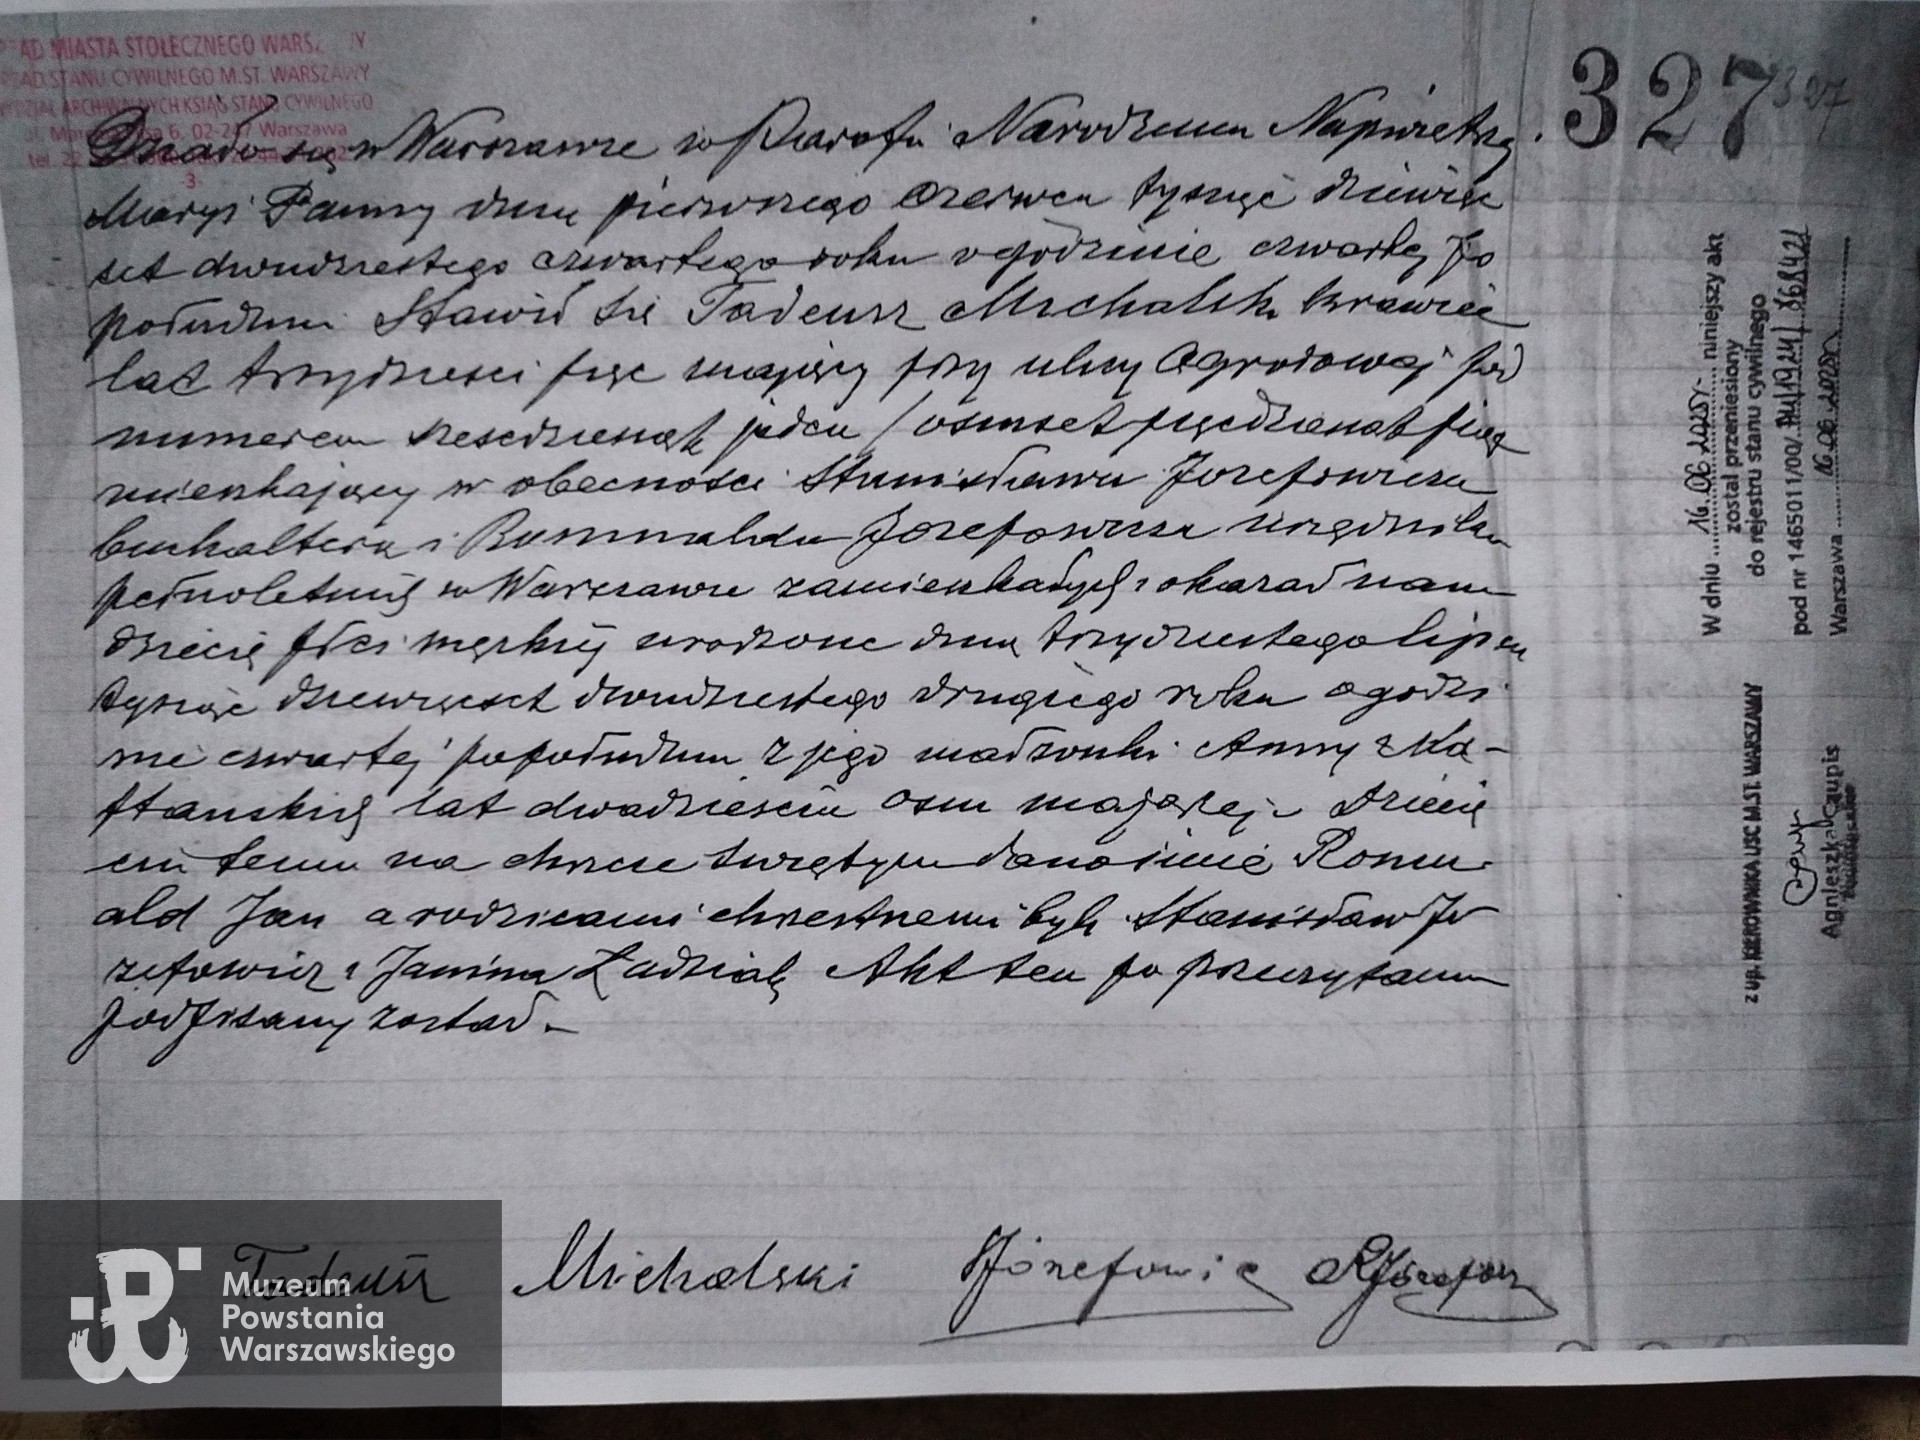 AD MIASTA STOŁECZNEGO WARSZ WY
ZĄD STANU CYWILNEGO M.ST. WARSZAWY
WYDZIAŁ ARCHIWALNYCH KSIĄG STANU CYWILNEGO
6, 02-247 Warszawa
tel. 22
-3-
327
327
Działo się w Warszawie w Parafii Narodzenia Najświętszej
Maryi Panny dnia pierwszego czerwca tysiąc dziewięć
set dwudziestego czwartego roku o godzinie czwartej po
południu Stawił się Tadeusz Michalski krawiec
lat trzydzieści pięć mający przy ulicy Ogrodowej pod
numerem sześćdziesiąt jeden / osmset pięćdziesiąt pięć
mieszkający w obecności Stanisława Józefowicza
buchaltera i Romualda Józefowicza urzędnika
pełnoletnich w Warszawie zamieszkałych i okazał nam
dziecię płci męskiej urodzone dnia trzydziestego lipca
tysiąc dziewięćset dwudziestego drugiego roku o godzi
nie czwartej po południu z jego małżonki Anny z Ka-
sztańskich lat dwadzieścia osm mającej. Dziecię
ciu temu na chrzcie świętym dano imię Romu
ald Jan a rodzicami chrzestnemi byli Stanisław Jó
zefowicz i Janina Akt ten po przeczytaniu
podpisany został.-
Tadeusz Michalski SJózefowicz RJózefowicz
W dniu 16.06.2025r. niniejszy akt
został przeniesiony
do rejestru stanu cywilnego
pod nr 1465011/00/AU/1924/368421
Warszawa 16.06.2025r.
z up. KIEROWNIKA USC M.ST. WARSZAWY
Agnieszka Czupis
Muzeum
Powstania
Warszawskiego